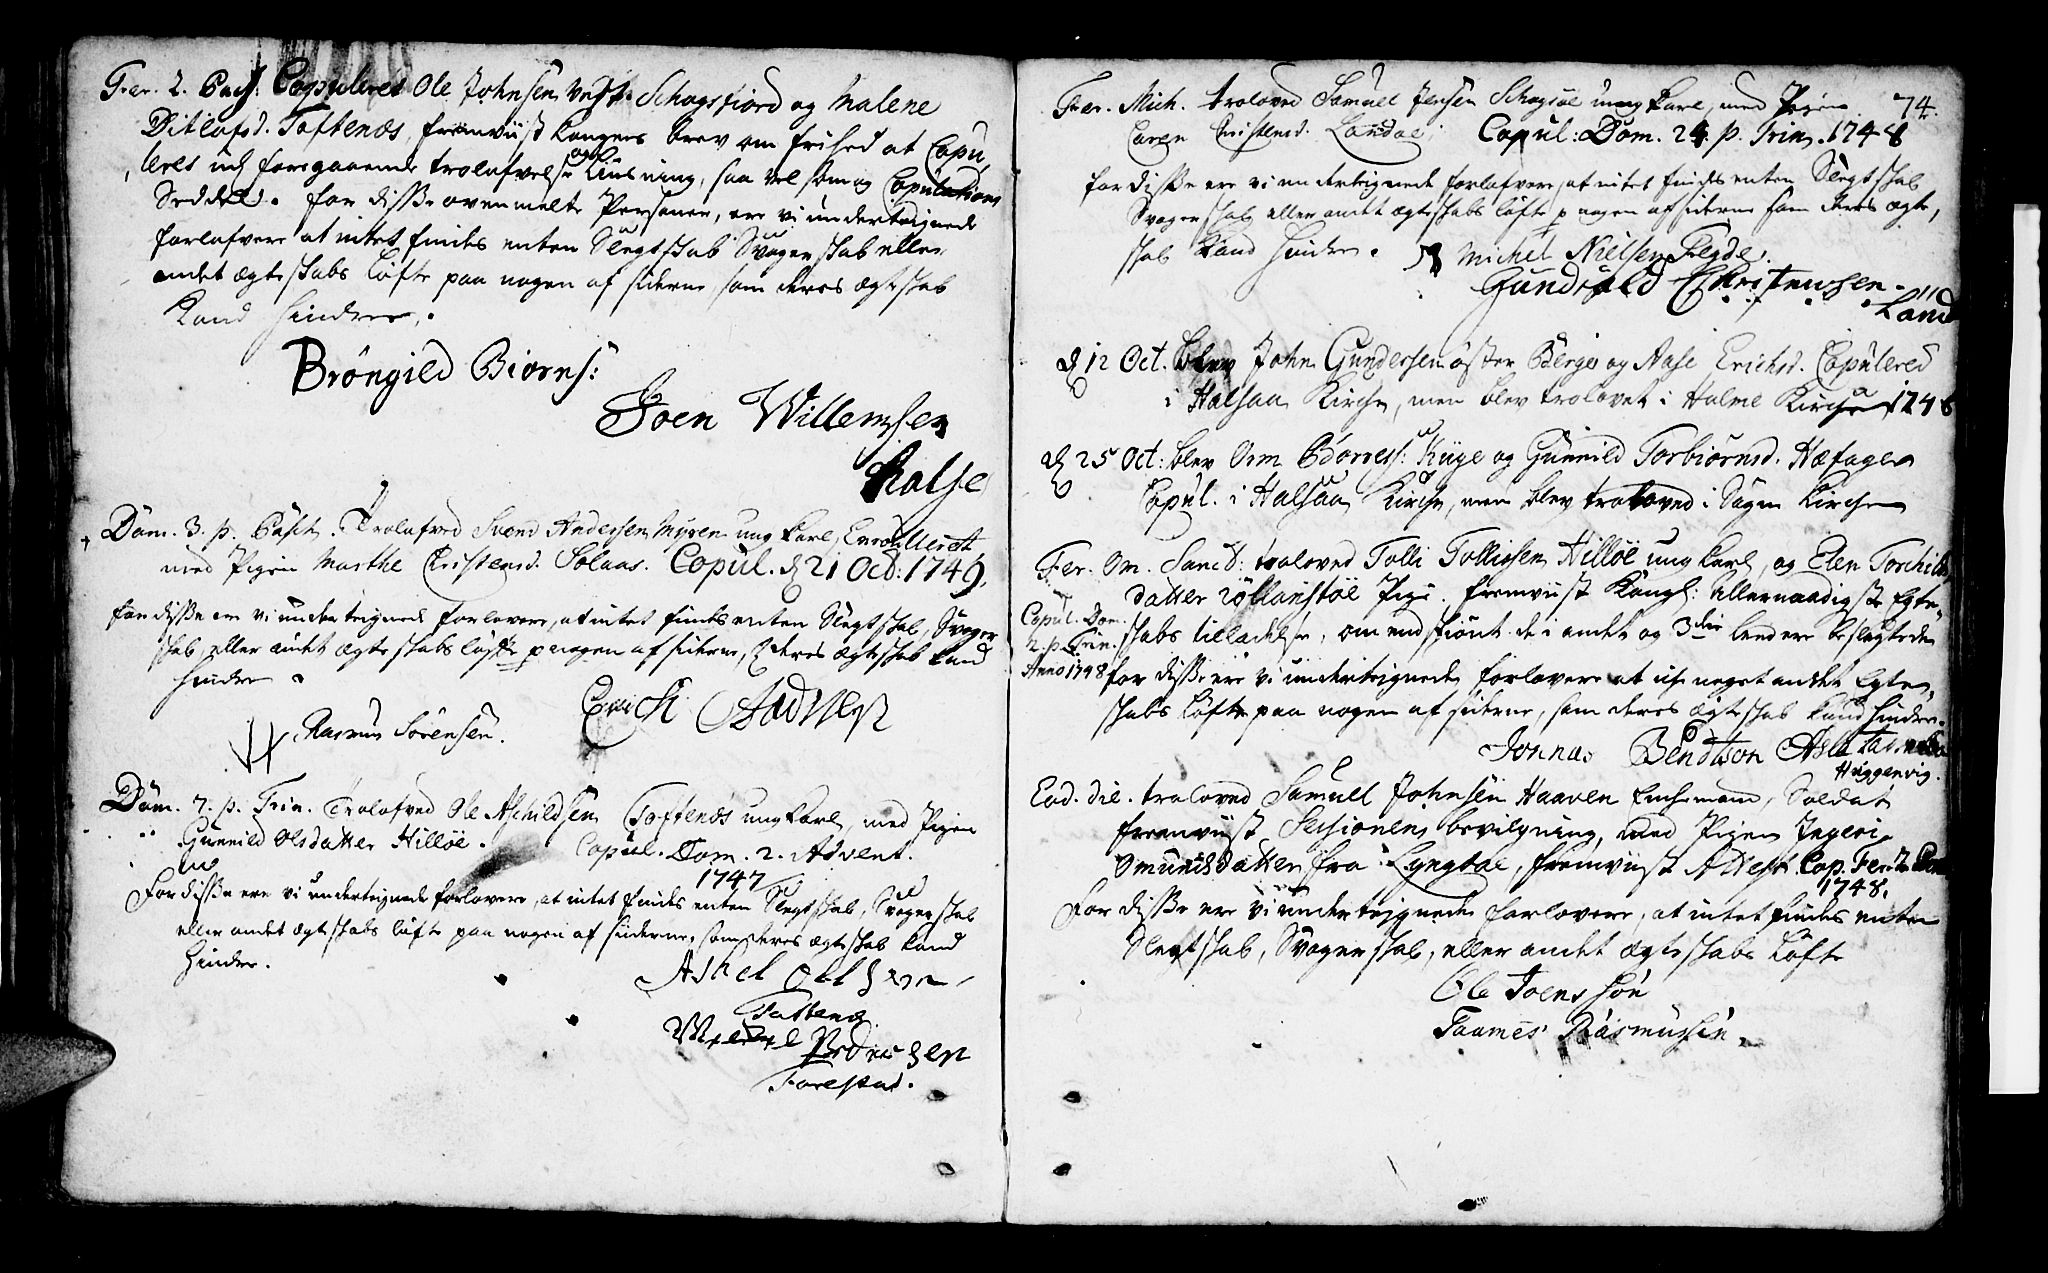 Fer. 2. Pasch: Copuleret Ole Johnsen Vest. Schogsfiord og Malene
Ditlofsd. Toftenæs, fremviist Kongens brev om frihed at Copu,
leres uden foregaaende trolofvelse og Liusning, saa vel som og Copulations
Seddel. for disse ovenmelte Personer, ere vi undertegnede
forlofvere at intet findes enten Slegtskab Svogerskab eller
andet ægteskabs løfte paa nogen af siderne, som deres ægteskab
Kand hindre.
Bröngild Biörns:
Joen Willemsen
Halse
Dom. 3. p. Pasch. Trolofved Svend Andersen Myren ung Karl, Enroulleret
med Pigen Marthe Christensd. Solaas. Copul. d 21 Oct: 1749.
for disse ere vi undertegnede forlovere, at intet findes enten Slegtskab, Svoger
skab, eller andet ægteskabs løfte p nogen af siderne, deres ægteskab kand
hindre.
Rasmus Sörensen.
Erich
Dom. 7. p. Trin. Trolofved Ole Aschildsen Toftenæs ung Karl, med Pigen
Gunnild Olsdatter Hilløe. Copul. Dom. 2. Advent.
1747
For disse ere vi undertegnede forlovere, at intet findes enten Slegtskab, Svogerskab
eller andet ægteskabs løfte paa nogen af siderne, som deres ægteskab kand
hindre.
Askel Oelsen
Toftenæs
Pedersen
Forestad.
74.
Fer. Mich. troloved Samuel Jensen Schogsøe ung Karl, med Pigen
Caren Christensd. Landøe; Copul: Dom. 24 p. Trin. 1748
for disse ere vi undertegnede forlofvere, at intet findes enten Slegtskab
Svogerskab eller andet ægteskabs løfte p nogen af siderne som deres ægte,
skab kand hindre.
Michel Nielsen Tregde.
Gundvald Christensen.
Land
d 12 Oct. blev John Gundersen öster Berge og Aase Erichsd. Copulered
i Halsaa Kirche, men blev trolovet i Holme Kirche 1748
d 25 Oct: blev Orm Börress: Kuge og Gunnild Torbiörnsd. Hæfager
Copul. i Halsaa Kirche, men blev troloved i Sögne Kirche
Fer. Om. Sanct: troloved Tolli Tollissen Hilløe ung Karl, og Elen Torchilds
datter Pige. fremviist Kongl: Allernaadigste Egte,
skabs tilladelse, omendskiönt de i andet og 3die leed ere beslegtede
Copul. Dom.
2. p. Trin.
Anno 1748
for disse ere vi undertegnede forlovere at icke noget andet Egte,
skabs løfte paa nogen af siderne, som deres ægteskab kand hindre.
Jonnas Bendtson
Huggenvig.
Eod. die. troloved Samuel Johnsen Haaven Enchemand, Soldat
fremviist Sessionens bevilgning, med Pigen Ingeri
Omundsdatter fra Lyngdal, fremviist Attest. Cop. Fer. 2
1748.
For disse ere vi undertegnede forlovere, at intet findes enten
Slegtskab, Svogerskab, eller andet ægteskabs Løfte
Ole Joenssön
Taames Rasmussen.